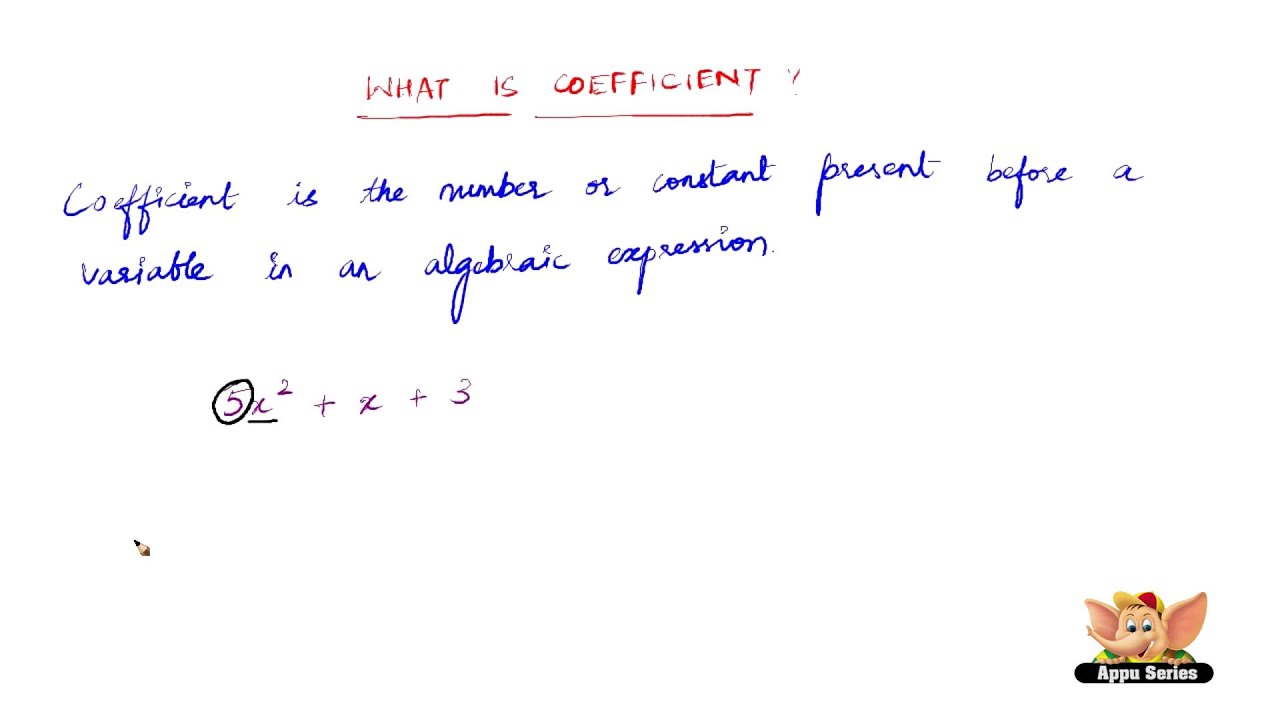 WHAT IS COEFFICIENT ?
Coefficient is the number or constant present before a
variable in an algebraic expression.
5x² + x + 3
Appu Series